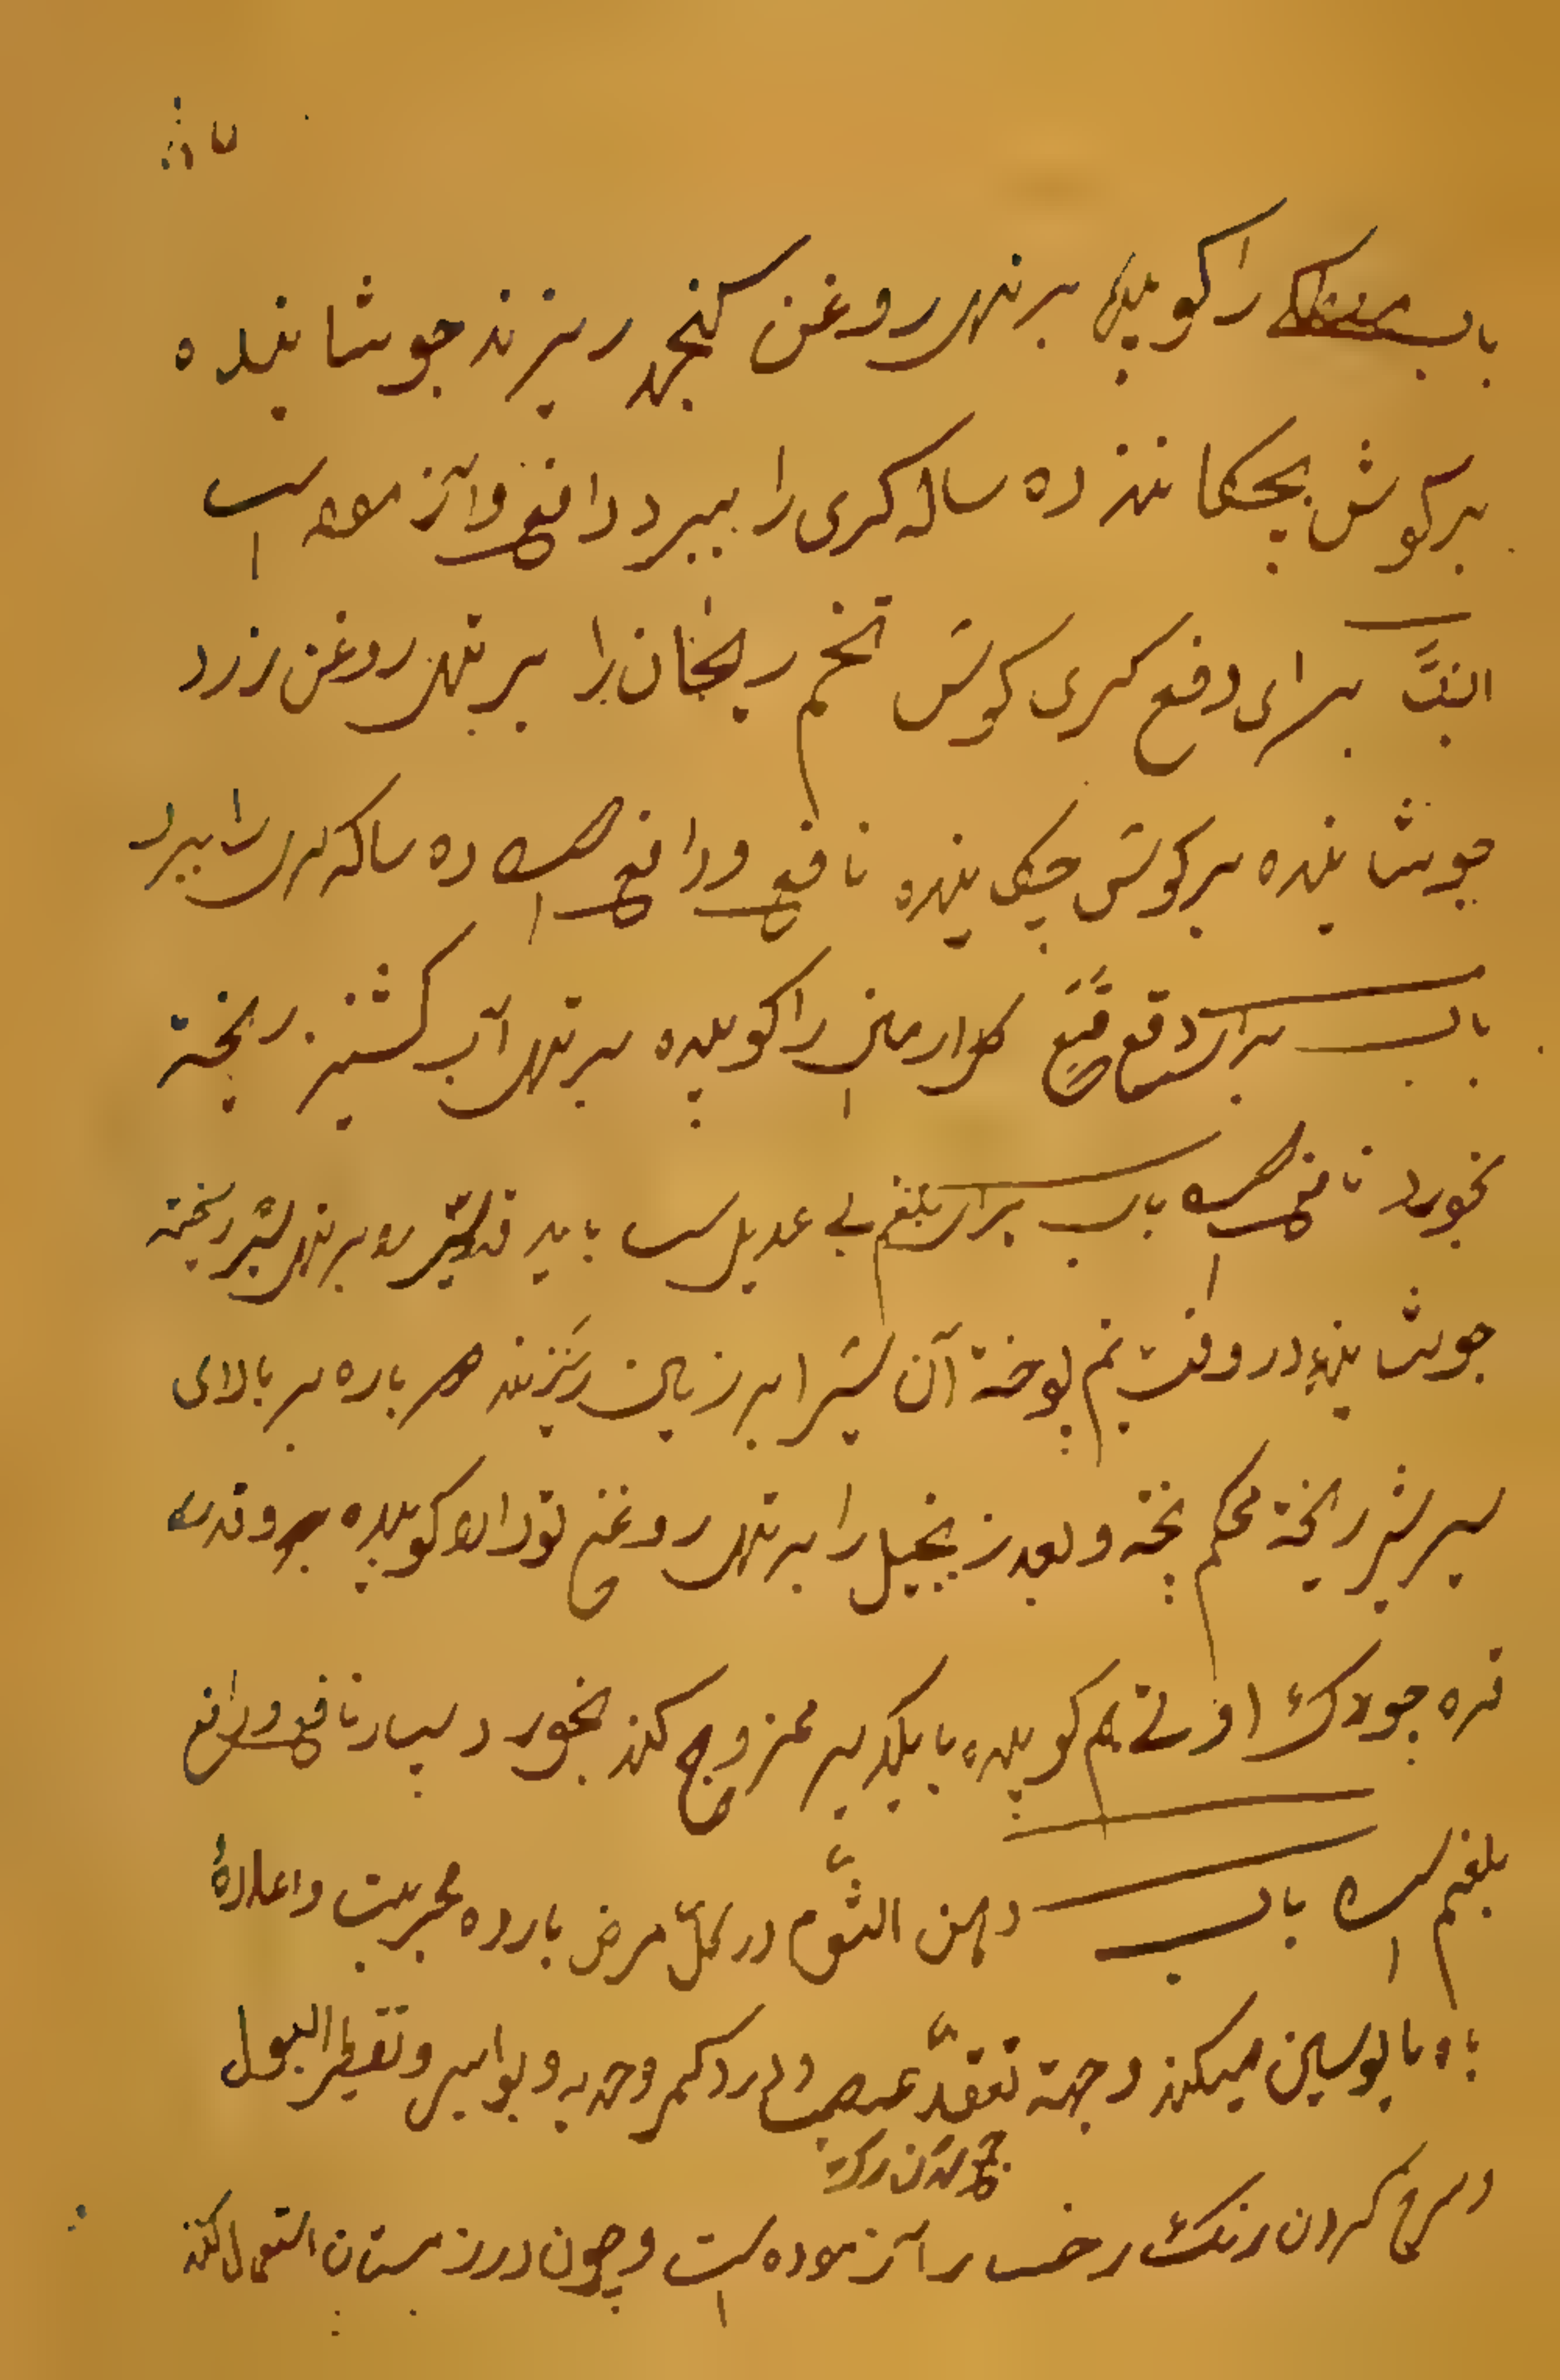 باب را کوبیده بر تهل روغن کنجد ریزند جوشانیده
بر کوش بچکانند ده ساله کری را ببرد دافع وآزموده است
البتّه برای دفع کری کوش تخم ریحان را بر تهل روغن زرد
جوشانیده بر کوش چکانیده نافع ودافع است ده ساله کری را ببرد
باب برای دفع قی کل ارمنی را کوبیده بر تهل آب کشنیز ریخته
بخورد نافع است باب برای بلغم بی عدیل است باید بر تهل شیر ریخته
جوشانیده در وقت نیم پوخته آن شیر ریزند هر باره بر بالای
شیر ریخته محکم پخته وبعد زنجبیل را بر تهل روغن کوبیده
قره اوتی هم کوبیده با یکدیر ممزوج کند بخورد بسیار نافع ودافع
بلغم است باب دهن الثّوم در کلّ مرض بارده مجربیت واعادهٔ
باه مایوسین میکند وجهة تعقّد عصب ودرد کمر وحدبه وبواسیر وتقطیر البول
وسرخ کردن رنک رخسار آزموده است وچون در زمستان استعمال کند